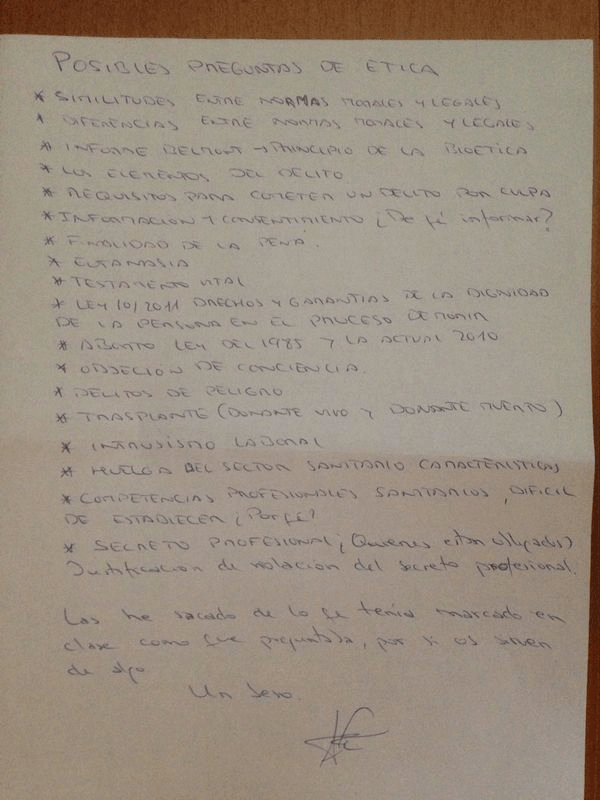 POSIBLES PREGUNTAS DE ETICA
* SIMILITUDES ENTRE NORMAS MORALES Y LEGALES
* DIFERENCIAS ENTRE NORMAS MORALES Y LEGALES
* INFORME BELMONT → PRINCIPIO DE LA BIOETICA
* LOS ELEMENTOS DEL DELITO
* REQUISITOS PARA COMETER UN DELITO POR CULPA
* INFORMACION Y CONSENTIMIENTO ¿De qé informar?
* FINALIDAD DE LA PENA.
* EUTANASIA
* TESTAMENTO VITAL
* LEY 10/2011 DRECHOS Y GARANTIAS DE LA DIGNIDAD
DE LA PERSONA EN EL PROCESO DE MORIR
* ABORTO LEY DEL 1985 Y LA ACTUAL 2010
* OBJECION DE CONCIENCIA.
* DELITOS DE PELIGRO
* TRASPLANTE (DONANTE VIVO Y DONANTE MUERTO)
* INTRUSISMO LABORAL
* HUELGA DEL SECTOR SANITARIO CARACTERISTICAS
* COMPETENCIAS PROFESIONALES SANITARIOS, DIFICIL
DE ESTABLECER ¿Por qé?
* SECRETO PROFESIONAL ¿Quienes estan obligados?
Justificacion de violacion del secreto profesional.
Las he sacado de lo qe tenia marcado en
clase como qe preguntaba, por si os sirven
de algo.
Un beso.